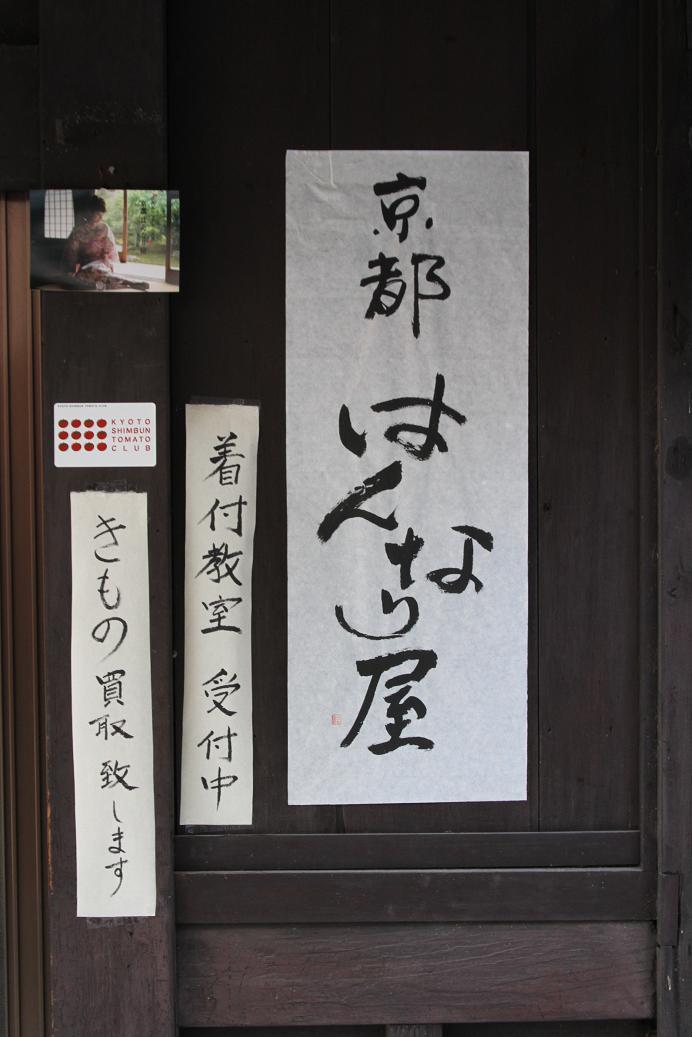 京都
はんなり屋
着付教室 受付中
きもの買取致します
KYOTO SHIMBUN TOMATO CLUB
KYOTO
SHIMBUN
TOMATO
CLUB